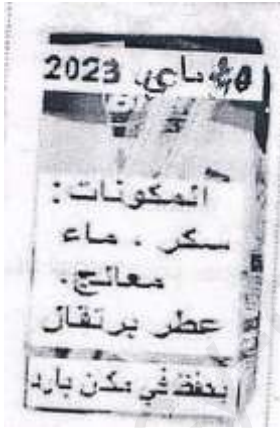 ماي 2023
المكونات:
سكر ، ماء
معالج.
عطر برتقال
يحفظ في مكن بارد